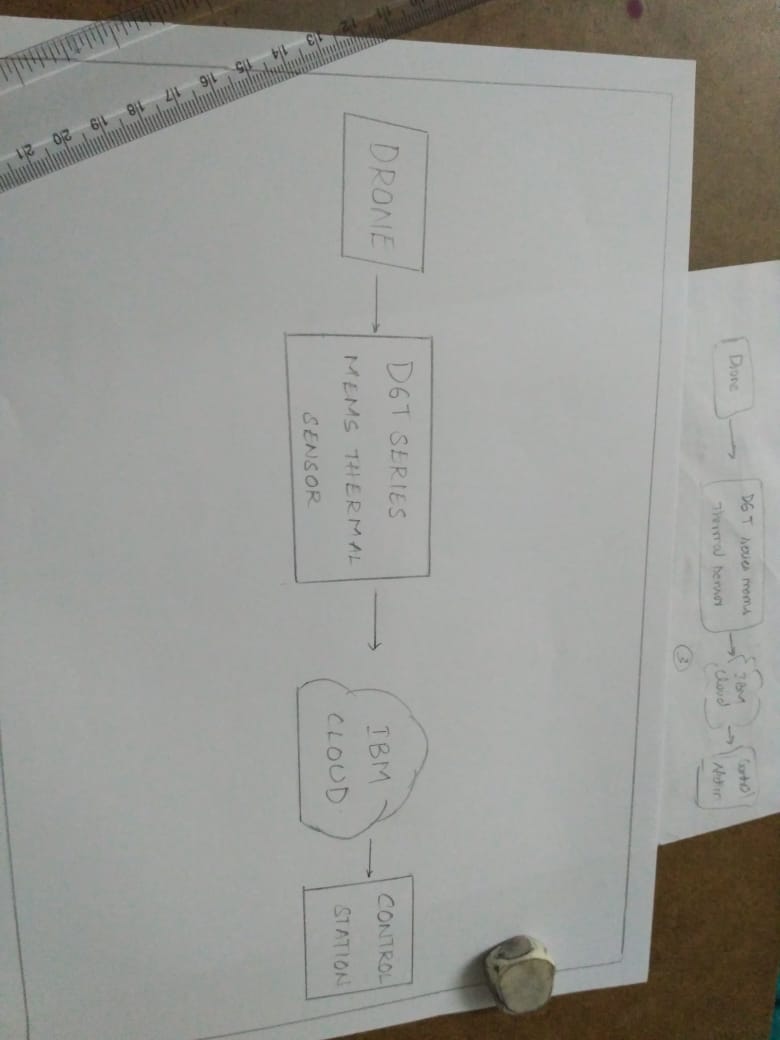 Drone
D6T series mems
Thermal sensor
IBM
cloud
Control
3
DRONE
D6T SERIES
MEMS THERMAL
SENSOR
IBM
CLOUD
CONTROL
STATION
12
13
14
15
16
17
18
19
20
21